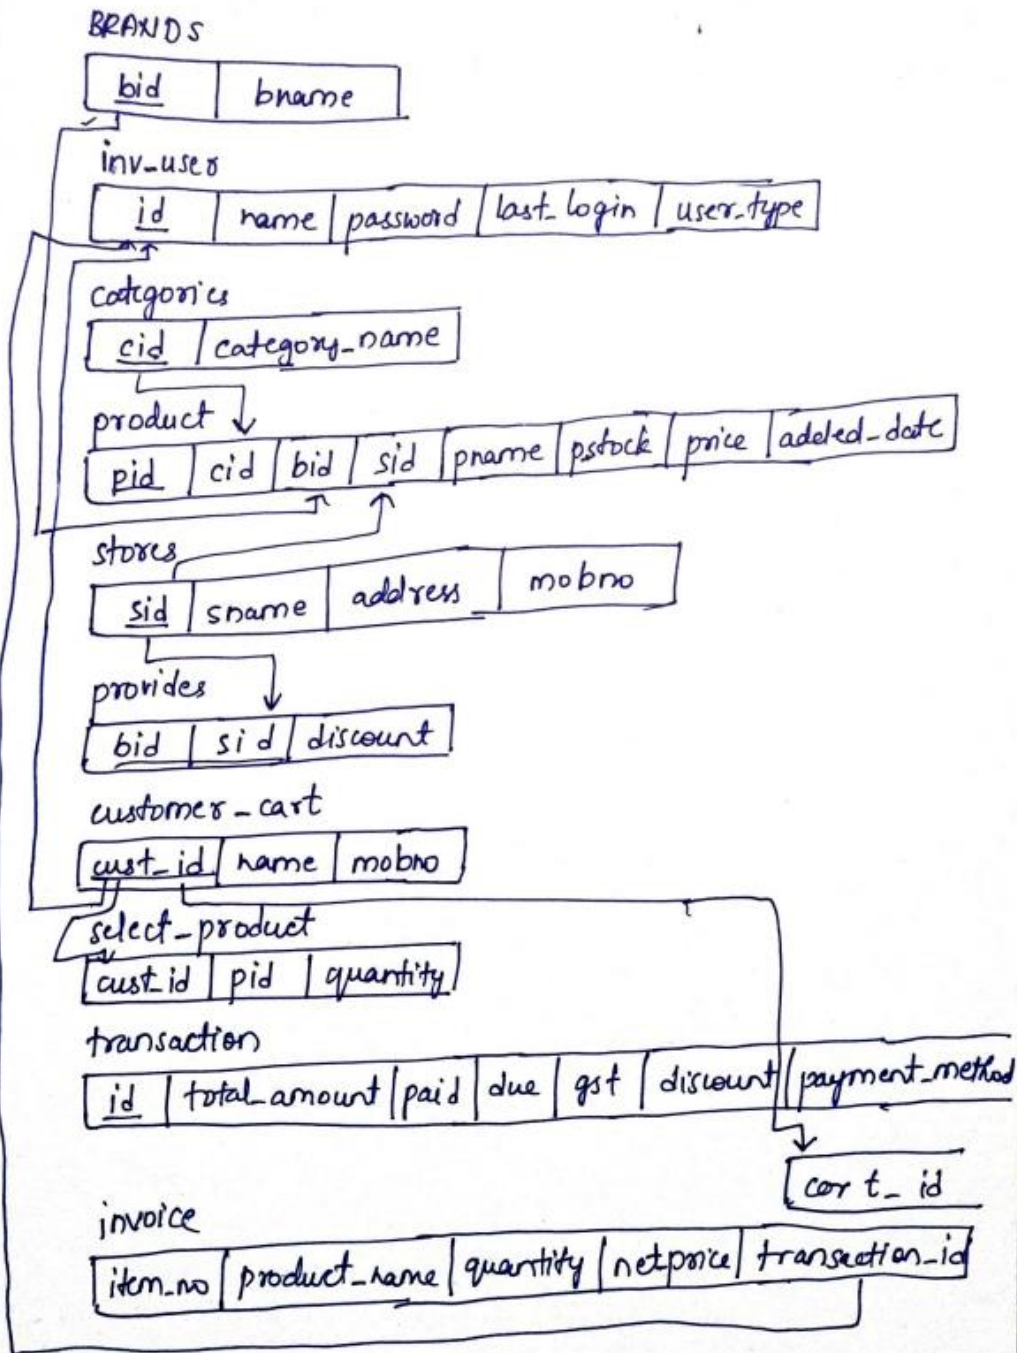 BRANDS
bid bname
inv-user
id name password last_login user_type
categories
cid category_name
product
pid cid bid sid pname pstock price added_date
stores
sid sname address mobno
provides
bid sid discount
customer-cart
cust_id name mobno
select-product
cust_id pid quantity
transaction
id total_amount paid due gst discount payment_method
cart_id
invoice
item_no product_name quantity netprice transaction_id